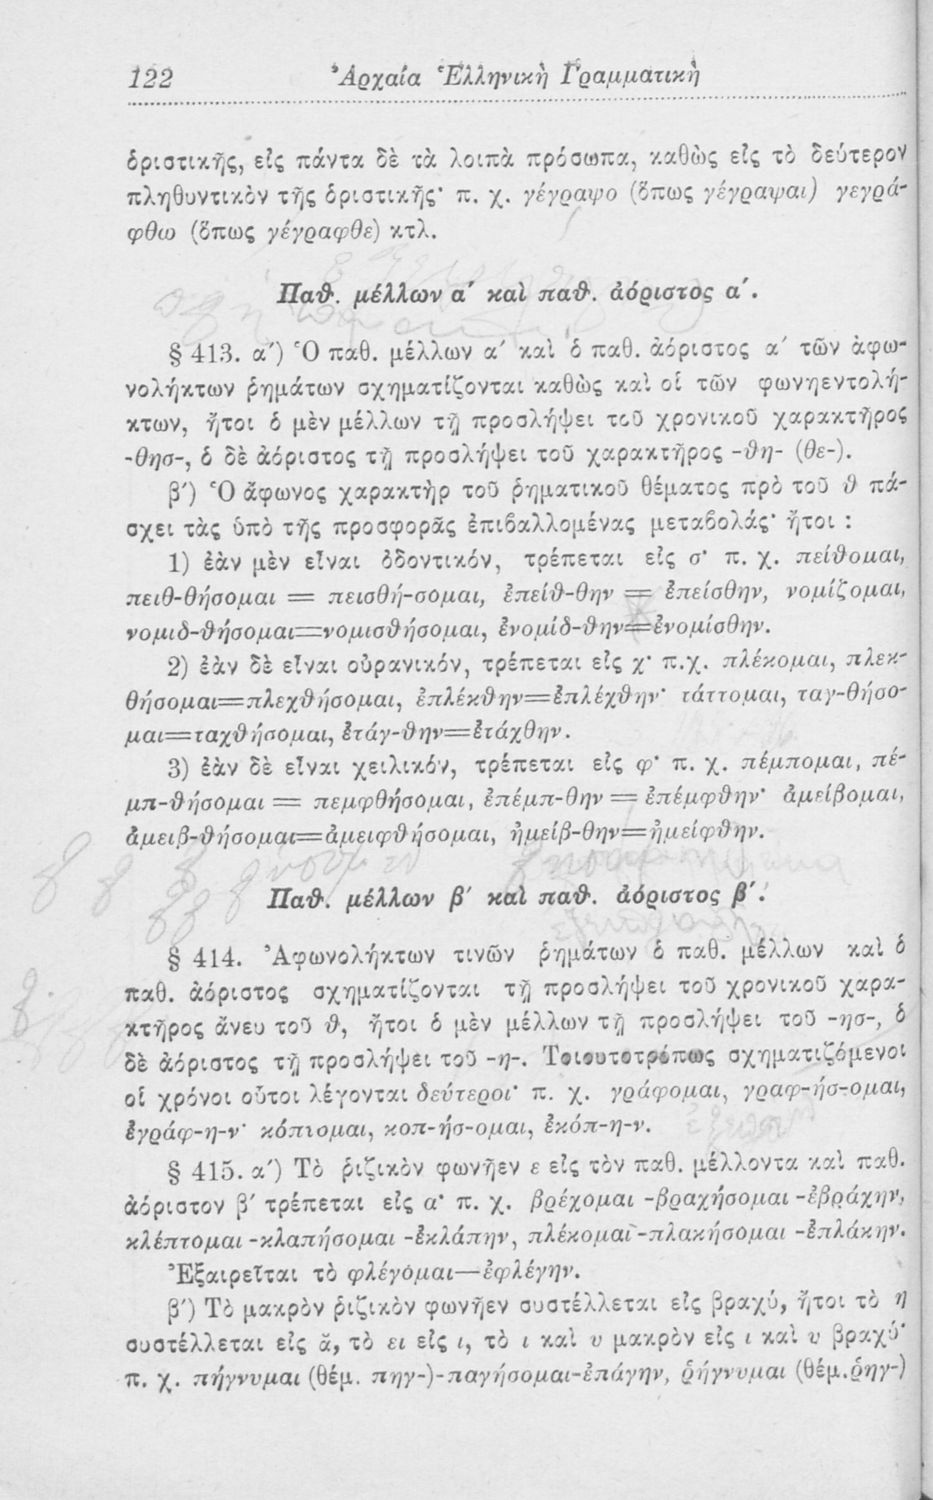 122 Ἀρχαία Ἑλληνικὴ Γραμματικὴ
ὁριστικῆς, εἰς πάντα δὲ τὰ λοιπὰ πρόσωπα, καθὼς εἰς τὸ δεύτερον
πληθυντικὸν τῆς ὁριστικῆς· π. χ. γέγραψο (ὅπως γέγραψαι) γεγρά-
φθω (ὅπως γέγραφθε) κτλ.
Παθ. μέλλων α΄ καὶ παθ. ἀόριστος α΄.
§ 413. α΄) Ὁ παθ. μέλλων α΄ καὶ ὁ παθ. ἀόριστος α΄ τῶν ἀφω-
νολήκτων ῥημάτων σχηματίζονται καθὼς καὶ οἱ τῶν φωνηεντολή-
κτων, ἤτοι ὁ μὲν μέλλων τῇ προσλήψει τοῦ χρονικοῦ χαρακτῆρος
-θησ-, ὁ δὲ ἀόριστος τῇ προσλήψει τοῦ χαρακτῆρος -θη- (θε-).
β΄) Ὁ ἄφωνος χαρακτὴρ τοῦ ῥηματικοῦ θέματος πρὸ τοῦ θ πά-
σχει τὰς ὑπὸ τῆς προσφορᾶς ἐπιβαλλομένας μεταβολάς· ἤτοι :
1) ἐὰν μὲν εἶναι ὀδοντικόν, τρέπεται εἰς σ· π. χ. πείθομαι,
πειθ-θήσομαι = πεισθή-σομαι, ἐπείθ-θην = ἐπείσθην, νομίζομαι,
νομιδ-θήσομαι=νομισθήσομαι, ἐνομίδ-θην=ἐνομίσθην.
2) ἐὰν δὲ εἶναι οὐρανικόν, τρέπεται εἰς χ· π.χ. πλέκομαι, πλεκ-
θήσομαι=πλεχθήσομαι, ἐπλέκθην=ἐπλέχθην· τάττομαι, ταγ-θήσο-
μαι=ταχθήσομαι, ἐτάγ-θην=ἐτάχθην.
3) ἐὰν δὲ εἶναι χειλικόν, τρέπεται εἰς φ· π. χ. πέμπομαι, πέ-
μπ-θήσομαι = πεμφθήσομαι, ἐπέμπ-θην = ἐπέμφθην· ἀμείβομαι,
ἀμειβ-θήσομαι=ἀμειφθήσομαι, ἠμείβ-θην=ἠμείφθην.
Παθ. μέλλων β΄ καὶ παθ. ἀόριστος β΄.
§ 414. Ἀφωνολήκτων τινῶν ῥημάτων ὁ παθ. μέλλων καὶ ὁ
παθ. ἀόριστος σχηματίζονται τῇ προσλήψει τοῦ χρονικοῦ χαρα-
κτῆρος ἄνευ τοῦ θ, ἤτοι ὁ μὲν μέλλων τῇ προσλήψει τοῦ -ησ-, ὁ
δὲ ἀόριστος τῇ προσλήψει τοῦ -η-. Τοιουτοτρόπως σχηματιζόμενοι
οἱ χρόνοι οὗτοι λέγονται δεύτεροι· π. χ. γράφομαι, γραφ-ήσ-ομαι,
ἐγράφ-η-ν· κόπτομαι, κοπ-ήσ-ομαι, ἐκόπ-η-ν.
§ 415. α΄) Τὸ ῥιζικὸν φωνῆεν ε εἰς τὸν παθ. μέλλοντα καὶ παθ.
ἀόριστον β΄ τρέπεται εἰς α· π. χ. βρέχομαι -βραχήσομαι -ἐβράχην,
κλέπτομαι -κλαπήσομαι -ἐκλάπην, πλέκομαι -πλακήσομαι -ἐπλάκην.
Ἐξαιρεῖται τὸ φλέγομαι—ἐφλέγην.
β΄) Τὸ μακρὸν ῥιζικὸν φωνῆεν συστέλλεται εἰς βραχύ, ἤτοι τὸ η
συστέλλεται εἰς ᾰ, τὸ ει εἰς ι, τὸ ι καὶ υ μακρὸν εἰς ι καὶ υ βραχύ·
π. χ. πήγνυμαι (θέμ. πηγ-)-παγήσομαι-ἐπάγην, ῥήγνυμαι (θέμ.ῥηγ-)